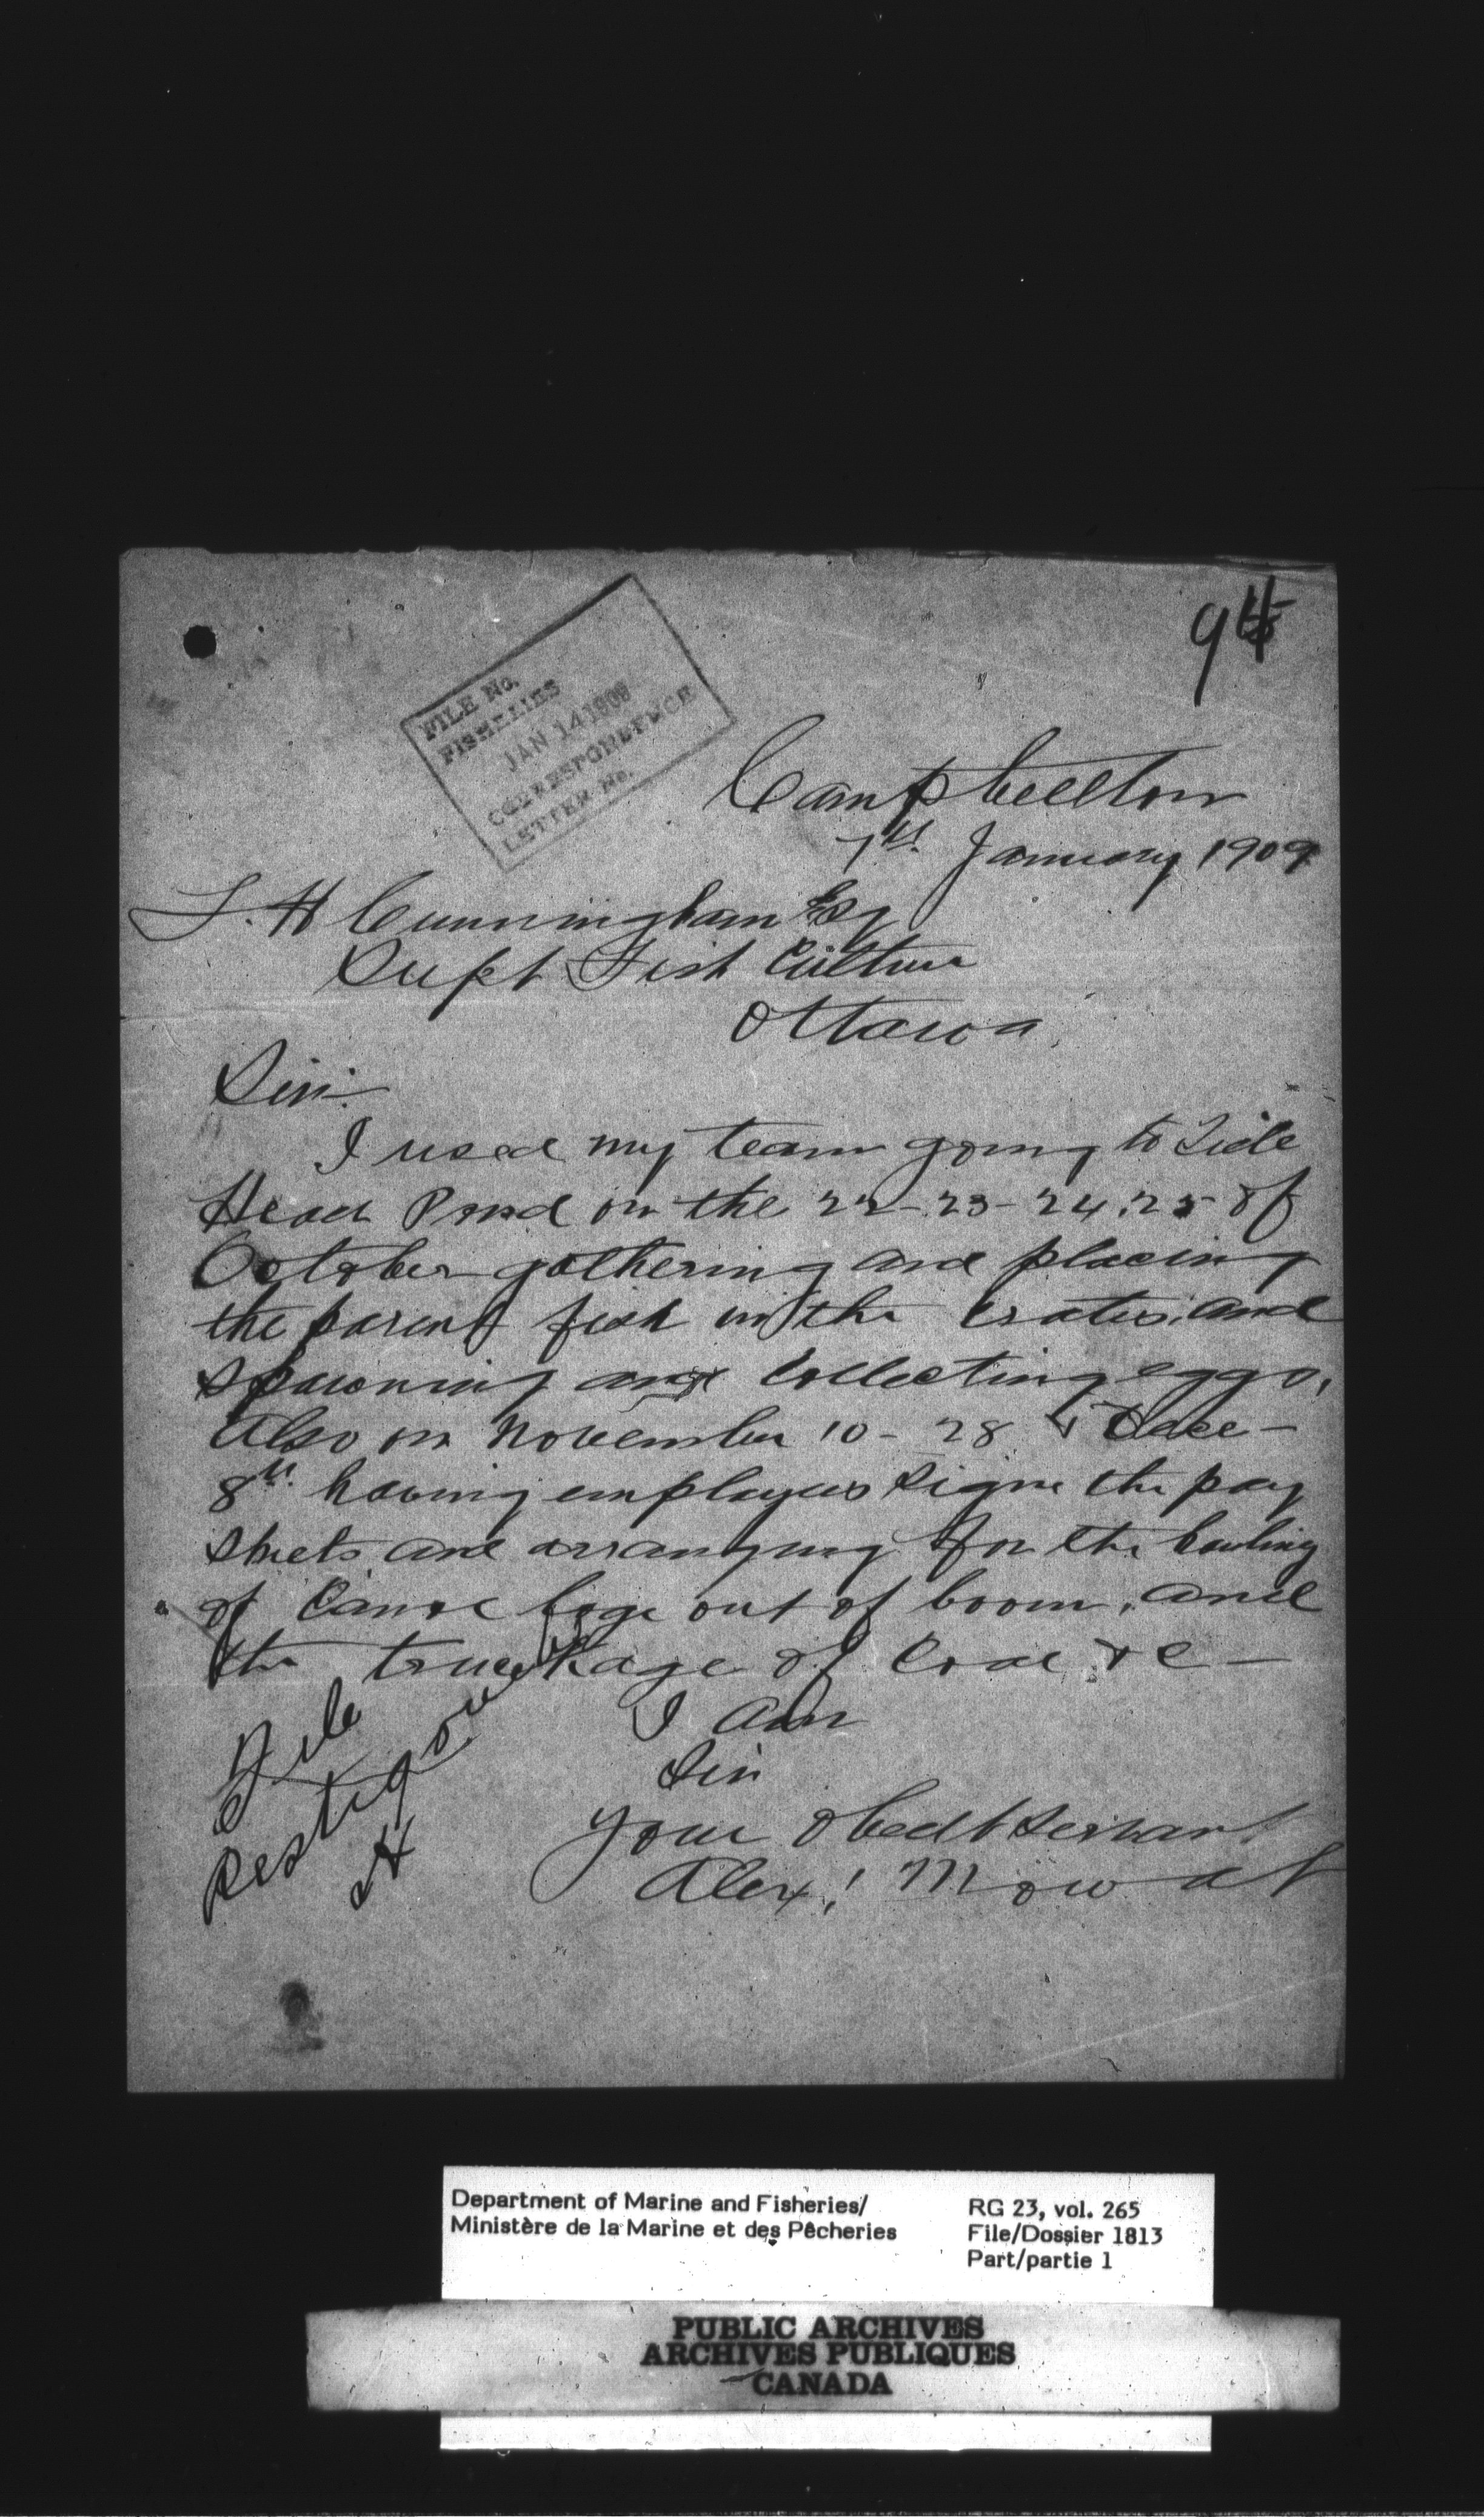 94
FILE No.
FISHERIES
JAN 14 1909
CORRESPONDENCE
LETTER No.
Campbellton
7th January 1909
F. H Cunningham Esq
Supt Fish Culture
Ottawa
Sir:-
I used my team going to Tide
Head Pond on the 22-23-24.25 of
October gathering and placing
the parent fish in the crates, and
spawning and collecting eggs,
Also on November 10 - 28 & Dece-
8th. having employees sign the pay
sheets and arranging for the hauling
of Canoe logs out of boom, and
the truckage of Coal &c -
I am
Sir
your obedt Servant
Alex! Mowat
File
Restigouche
Department of Marine and Fisheries/
Ministère de la Marine et des Pêcheries
RG 23, vol. 265
File/Dossier 1813
Part/partie 1
PUBLIC ARCHIVES
ARCHIVES PUBLIQUES
CANADA